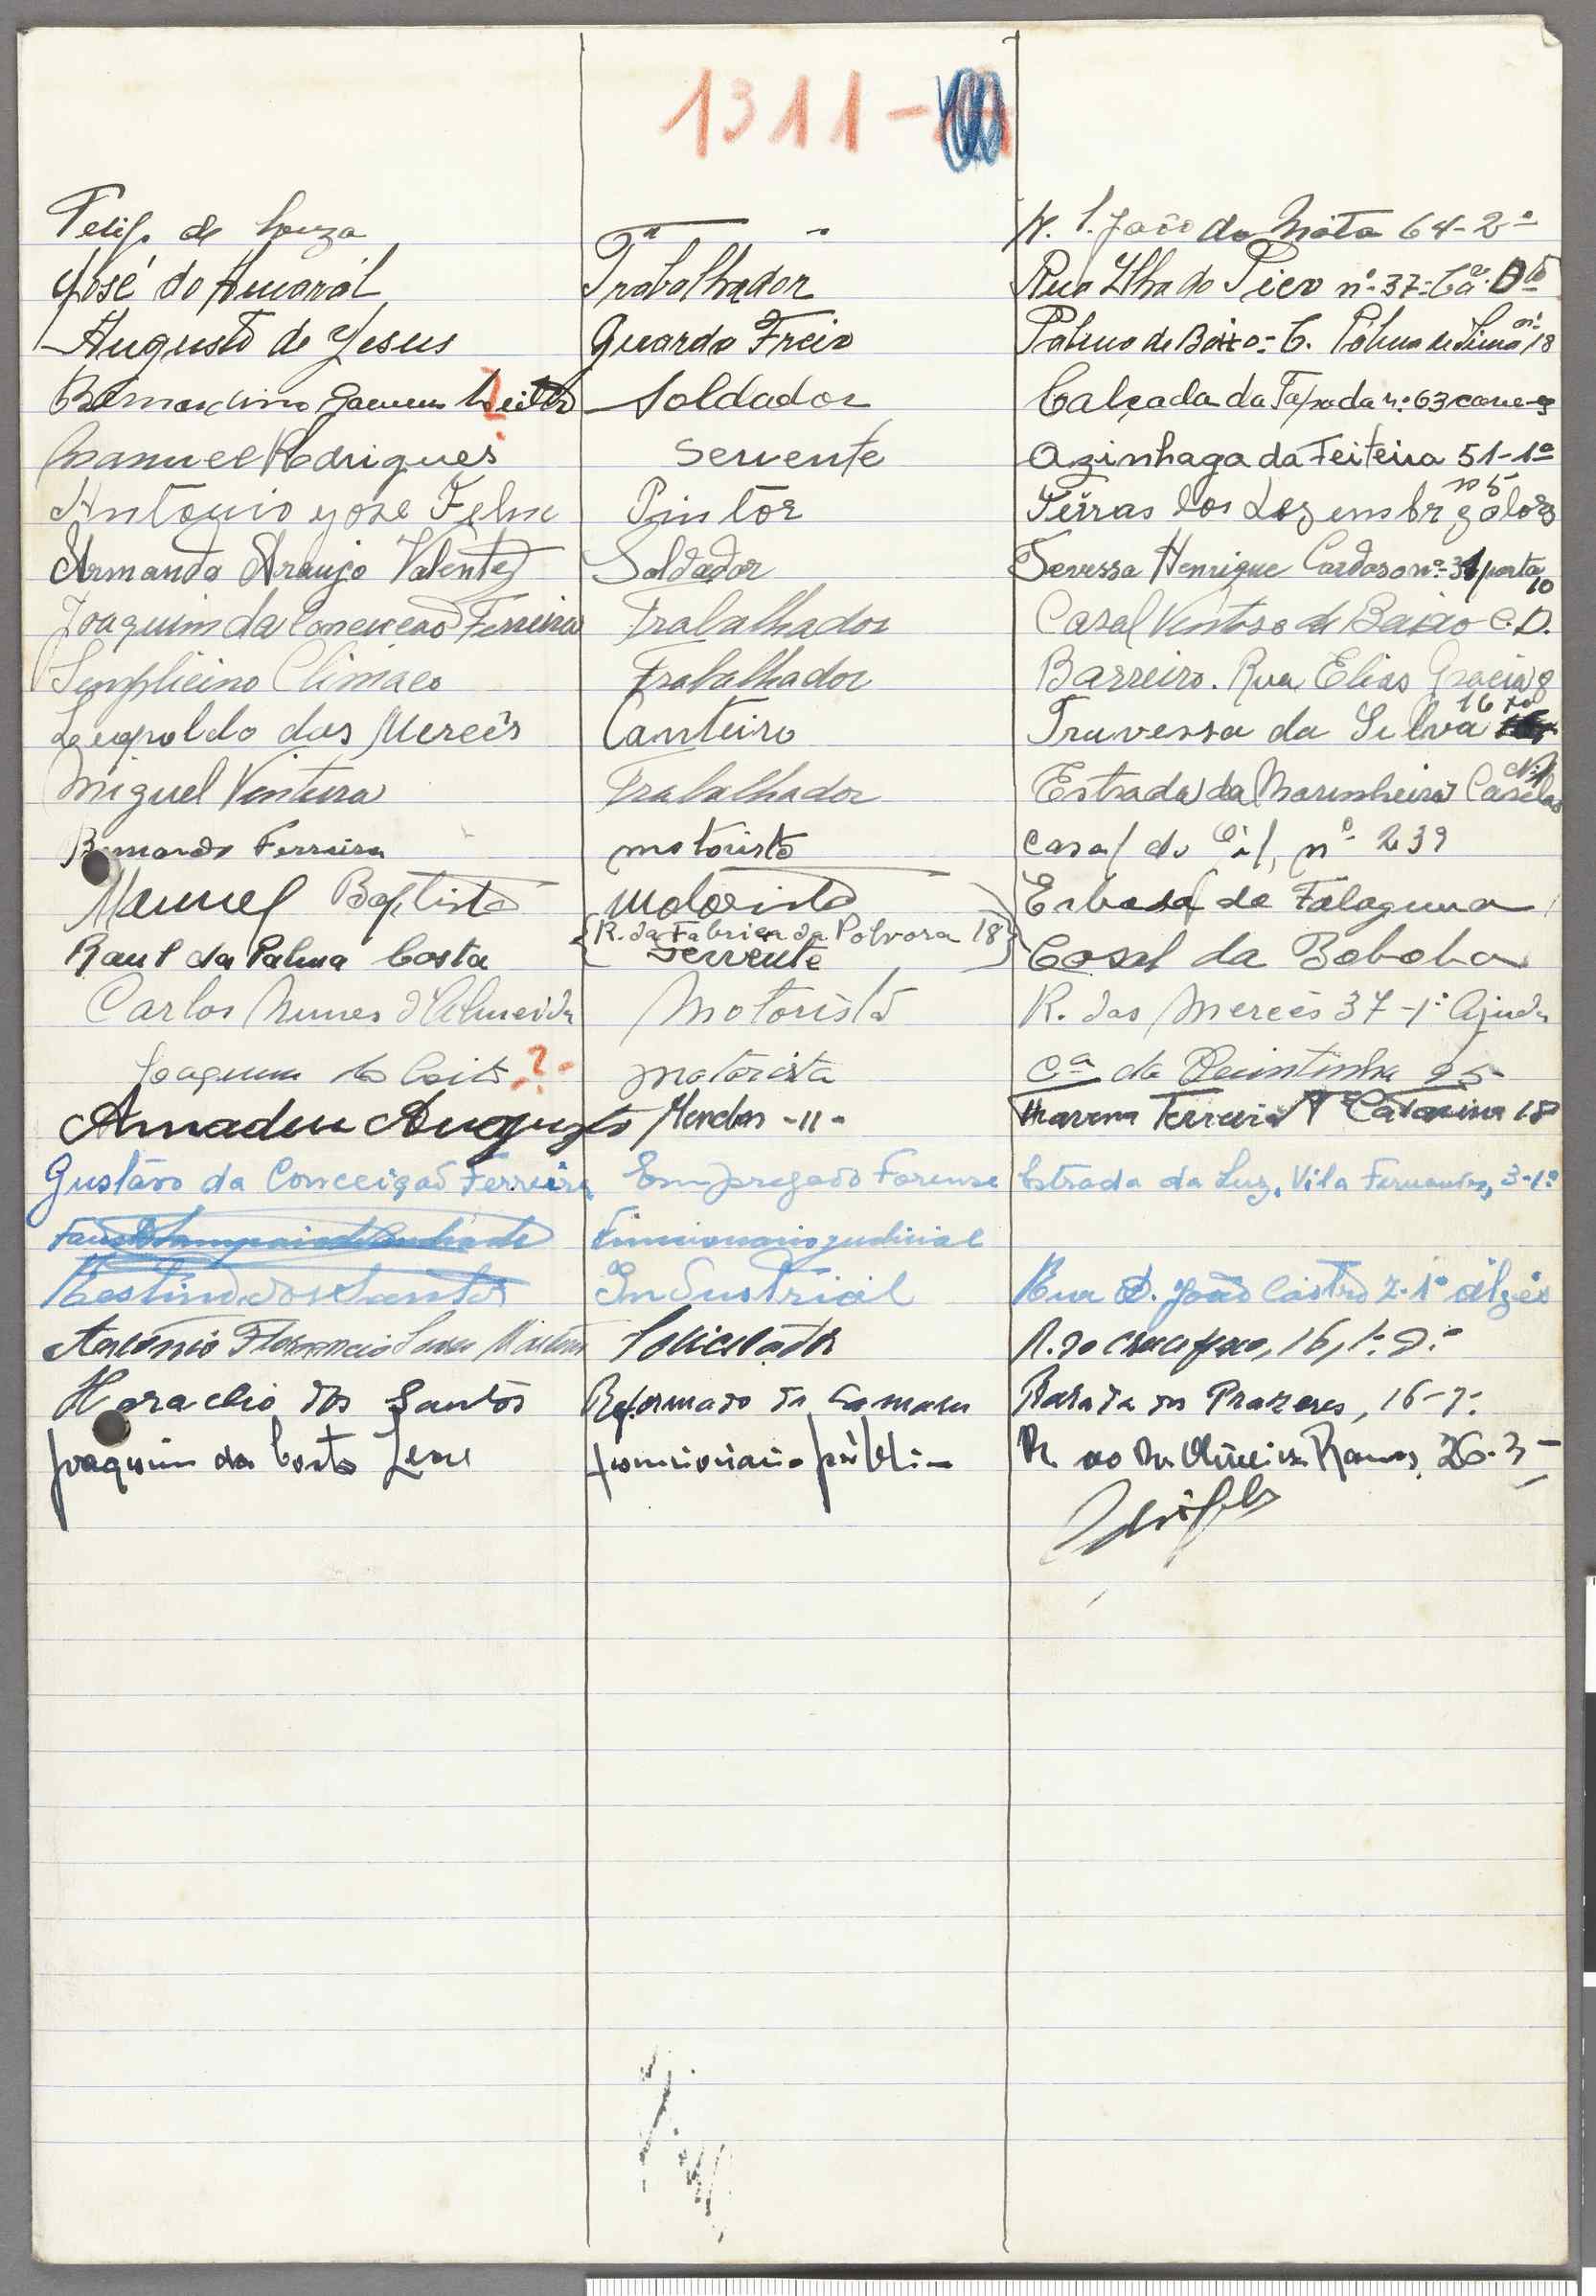 1311-
de Souza " " R. S. João da Mata 64-2º
José do Amarál Trabalhador Rua Ilha do Pico nº 37-6ª Dtº
Augusto de Jesus Guarda Freio Palma de Baixo - C. Palma de Lima nº 18
Bernardino ? Soldador Calçada da Tapada nº 63 cave
Manuel Rodrigues Servente Azinhaga da Feiteira 51-1º
António José Pintôr Terras dos nº 5
Armando Araujo Valente Soldador Tevessa Henrique Cardoso nº 31 porta 10
Joaquim da Conceicão Ferreira Trabalhador Casal Ventoso de Baixo C.D.
Simplicino Climaco Trabalhador Barreiro. Rua Elias Gracia 8
Leopoldo das Mercês Canteiro Travessa da Silva 16
Miguel Ventura Trabalhador Estrada da Marinheira Caselas
Bernardo Ferreira motorista Casal do Gil, nº 239
Manuel Baptista motorista de Falagueira
{R. da Fabrica da Polvora 18}
Raul da Palma Costa Servente Casal da Boboba
Carlos Nunes d'Almeida Motorista R. das Mercês 37-1º Ajuda
Joaquim ? motorista Cª da Quintinha 95
Amadeu Augusto Mendes -11- 18
Gustavo da Conceição Ferreira Empregado Forense Estrada da Luz, Vila Fernandes, 3-1º
Fausto Sampaio de Andrade Funcionario judicial
dos Santos Industrial Rua D. João Castro 2-1º Algés
António Florencio Martins Solicitador R. do Crucifixo, 16, 1º D.º
Horacio dos Santos Reformado da Camara Parada dos Prazeres, 16-
Joaquim da Costa Leal funcionario publi- R. do Dr. Oliveira Ramos, 26-3